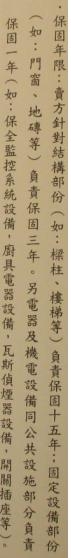 ‧保固年限：賣方針對結構部份（如：樑柱、樓梯等）負責保固十五年；固定設備部份
（如：門窗、地磚等）負責保固三年。另電器及機電設備同公共設施部分負責
保固一年（如：保全監控系統設備，廚具電器設備，瓦斯偵煙器設備，開關插座等）。